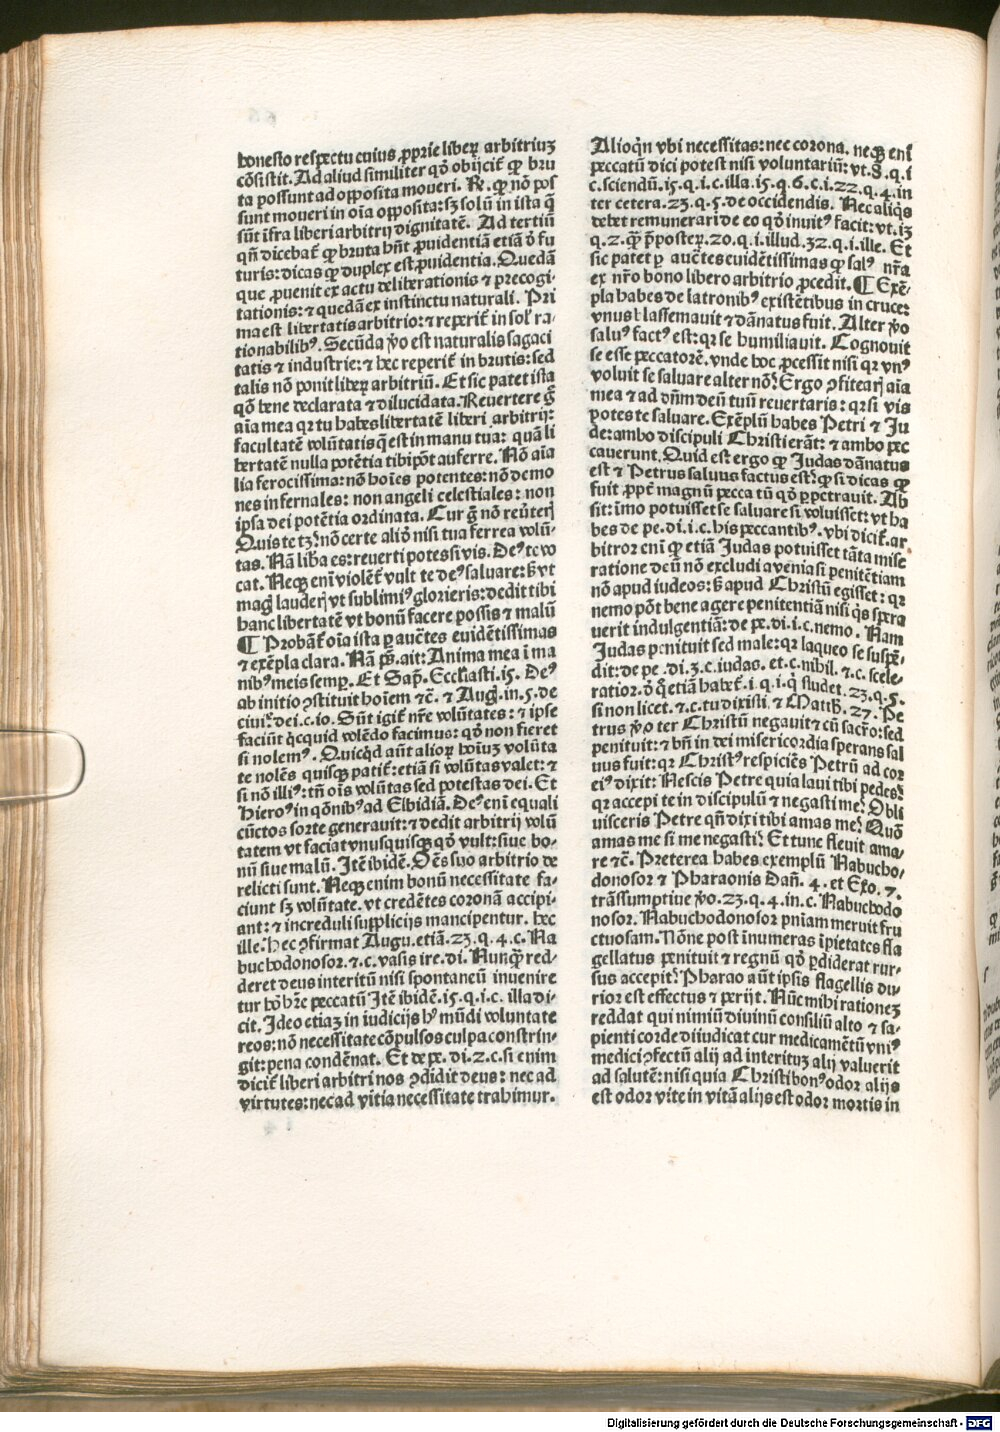 honesto respectu cuius ꝓprie liberꝝ arbitriuꝫ
cōsistit. Ad aliud similiter qd̓ obijcit̉ ꝙ bru
ta possunt ad opposita moueri. ℞. ꝙ nō pos
sunt moueri in oīa opposita: sꝫ solū in ista q̄
sūt īfra liberi arbitrij dignitatē. Ad tertiū
qn̄ dicebat̉ ꝙ bruta hn̄t ꝓuidentiā etiā ō fu
turis: dicas ꝙ duplex est ꝓuidentia. Quedā
que ꝓuenit ex actu deliberationis ⁊ precogi
tationis: ⁊ quedā ex instinctu naturali. Pri
ma est libertatis arbitrio: ⁊ reperit̉ in sol̓ ra⸗
tionabilibꝰ. Secūda ꝟo est naturalis sagaci
tatis ⁊ industrie: ⁊ hec reperit̉ in brutis: sed
talis nō ponit liberꝝ arbitriū. Et sic patet ista
qd̓ bene declarata ⁊ dilucidata. Reuertere g̊
aīa mea qꝛ tu habes libertatē liberi arbitrij:
facultatē volūtatis q̄ est in manu tua: quā li
bertatē nulla potētia tibi pōt auferre. Nō aīa
lia ferocissima: nō hoīes potentes: nō demo
nes infernales: non angeli celestiales: non
ipsa dei potētia ordinata. Cur g̊ nō reu̓terꝭ
Quis te tꝫ? nō certe aliō nisi tua ferrea volū⸗
tas. Nā lib̓a es: reuerti potes si vis. Deꝰ te vo
cat. Neqꝫ eni̅ violēt̉ vult te deꝰ saluare: sꝫ vt
magꝭ lauderꝭ vt sublimiꝰ glorieris: dedit tibi
hanc libertatē vt bonū facere possis ⁊ malū
¶ Probāt̉ oīa ista ꝑ auctes euidētissimas
⁊ exēpla clara. Nā ps̄. ait: Anima mea ī ma
nibꝰ meis semꝑ. Et Sap̄. Eccl̓iasti. 15. Deꝰ
ab initio ꝯstituit hoīem ⁊c̄. ⁊ Augꝰ. in. 5. de
ciui. dei. c. io. Sūt igit̉ nr̄e volūtates: ⁊ ipse
faciūt qͥcquid volēdo facimus: qd̓ non fieret
si nolemꝰ. Quicqͥd aūt alioꝝ hoīuꝫ volūta
te nolēs quisqꝫ patit̉: etiā si volūtas valet: ⁊
si nō illiꝰ: tn̄ oīs volūtas sed potestas dei. Et
Hieroꝰ in qōnibꝰ ad Elbidiā. Deꝰ eni̅ equali
cūctos sorte generauit: ⁊ dedit arbitrij volū
tatem vt faciat vnusquisqꝫ qd̓ vult: siue bo⸗
nū siue malū. Itē ibidē. Oēs suo arbitrio de
relicti sunt. Neqꝫ enim bonū necessitate fa⸗
ciunt sꝫ volūtate. vt credētes coronā accipi⸗
ant: ⁊ increduli supplicijs mancipentur. hec
ille. Hec ꝯfirmat Augu. etiā. 23. q. 4. c. Na
buchodonosor. ⁊ c. vasis ire. di. Nunqͣꝫ red⸗
deret deus interitū nisi spontaneū inuenire
tur hō hr̄e peccatū Itē ibidē. 15. q. i. c. illa di⸗
cit. Ideo etiaꝫ in iudicijs hꝰ mūdi voluntate
reos: nō necessitate cōpulsos culpa constrin⸗
git: pena condēnat. Et de pe. di. 2. c. si enim
dicit̉ liberi arbitri nos ꝯdidit deus: nec ad
virtutes: nec ad vitia necessitate trahimur.
Alioqͥn vbi necessitas: nec corona. neqꝫ eni̅
peccatū dici potest nisi voluntariū: vt. 8. q. i
c. sciendū. 15. q. i. c. illa. 15. q. 6. c. i. 22. q. 4. in
ter cetera. 23. q. 5. de occidendis. Nec aliqͥs
debet remunerari de eo qd̓ inuitꝰ facit: vt. 13
q. 2. qꝫ p̄posterꝭ. 20. q. i. illud. 32. q. i. ille. Et
sic patet ꝑ auctes euidētissimas ꝙ salꝰ nr̄a
ex nr̄o bono libero arbitrio ꝓcedit. ¶ Exē⸗
pla habes de latronibꝰ existētibus in cruce:
vnus blassemauit ⁊ dānatus fuit. Alter ꝟo
saluꝰ factꝰ est: qꝛ se humiliauit. Cognouit
se esse peccatorē. vnde hoc ꝓcessit nisi qꝛ vnꝰ
voluit se saluare alter nō? Ergo ꝯfitearꝭ aīa
mea ⁊ ad dn̄m deū tuū reuertaris: qꝛ si vis
potes te saluare. Exēplū habes Petri ⁊ Ju
de: ambo discipuli Christi erāt: ⁊ ambo pec
cauerunt. Quid est ergo ꝙ Judas dānatus
est ⁊ Petrus saluus factus est? ꝙ si dicas ꝙ
fuit ꝓpt̉ magnū pecca tū qd̓ ꝑpetrauit. Ab
sit: imo potuisset se saluare si voluisset: vt ha
bes de pe. di. i. c. his peccantibꝰ. vbi dicit̉. ar
bitror eni̅ ꝙ etiā Judas potuisset tāta mise
ratione deū nō excludi a venia si penitētiam
nō apud iudeos: sꝫ apud Christū egisset: qꝛ
nemo pōt bene agere penitentiā nisi qͥs spera
uerit indulgentiā: de pe. di. i. c. nemo. Nam
Judas penituit sed male: qꝛ laqueo se suspē⸗
dit: de pe. di. 3. c. iudas. et. c. nihil. ⁊. c. scele⸗
ratior. ō q̄ etiā habet̉. i. q. i. qͥ studet. 23. q. 5.
si non licet. ⁊. c. tu dixisti. ⁊ Matth. 27. Pe
trus ꝟo ter Christū negauit ⁊ cū sacr̄o: sed
penituit: ⁊ bn̄ in dei misericordia sperans sal
uus fuit: qꝛ Christꝰ respiciēs Petrū ad cor
eiꝰ dixit: Nescis Petre quia laui tibi pedes?
qꝛ accepi te in discipulū ⁊ negasti me? Obli
uisceris Petre qn̄ dixi tibi amas me? Quō
amas me si me negasti? Et tunc fleuit ama⸗
re ⁊c̄. Preterea habes exemplū Nabucho⸗
donosor ⁊ Pharaonis Dan̄. 4. et Exo. 7.
trāssumptiue ꝟo. 23. q. 4. in. c. Nabuchodo
nosor. Nabuchodonosor pn̄iam meruit fru
ctuosam. Nōne post īnumeras īpietates fla
gellatus penituit ⁊ regnū qd̓ ꝑdiderat rur⸗
sus accepit? Pharao aūt ipsis flagellis du⸗
rior est effectus ⁊ perijt. Nūc mihi rationeꝫ
reddat qui nimiū diuinū consiliū alto ⁊ sa⸗
pienti corde diiudicat cur medicamētū vniꝰ
medici ꝯfectū alij ad interituꝫ alij valuerit
ad salutē: nisi quia Christi bonꝰ odor alijs
est odor vite in vitā alijs est odor mortis in
Digitalisierung gefördert durch die Deutsche Forschungsgemeinschaft - DFG